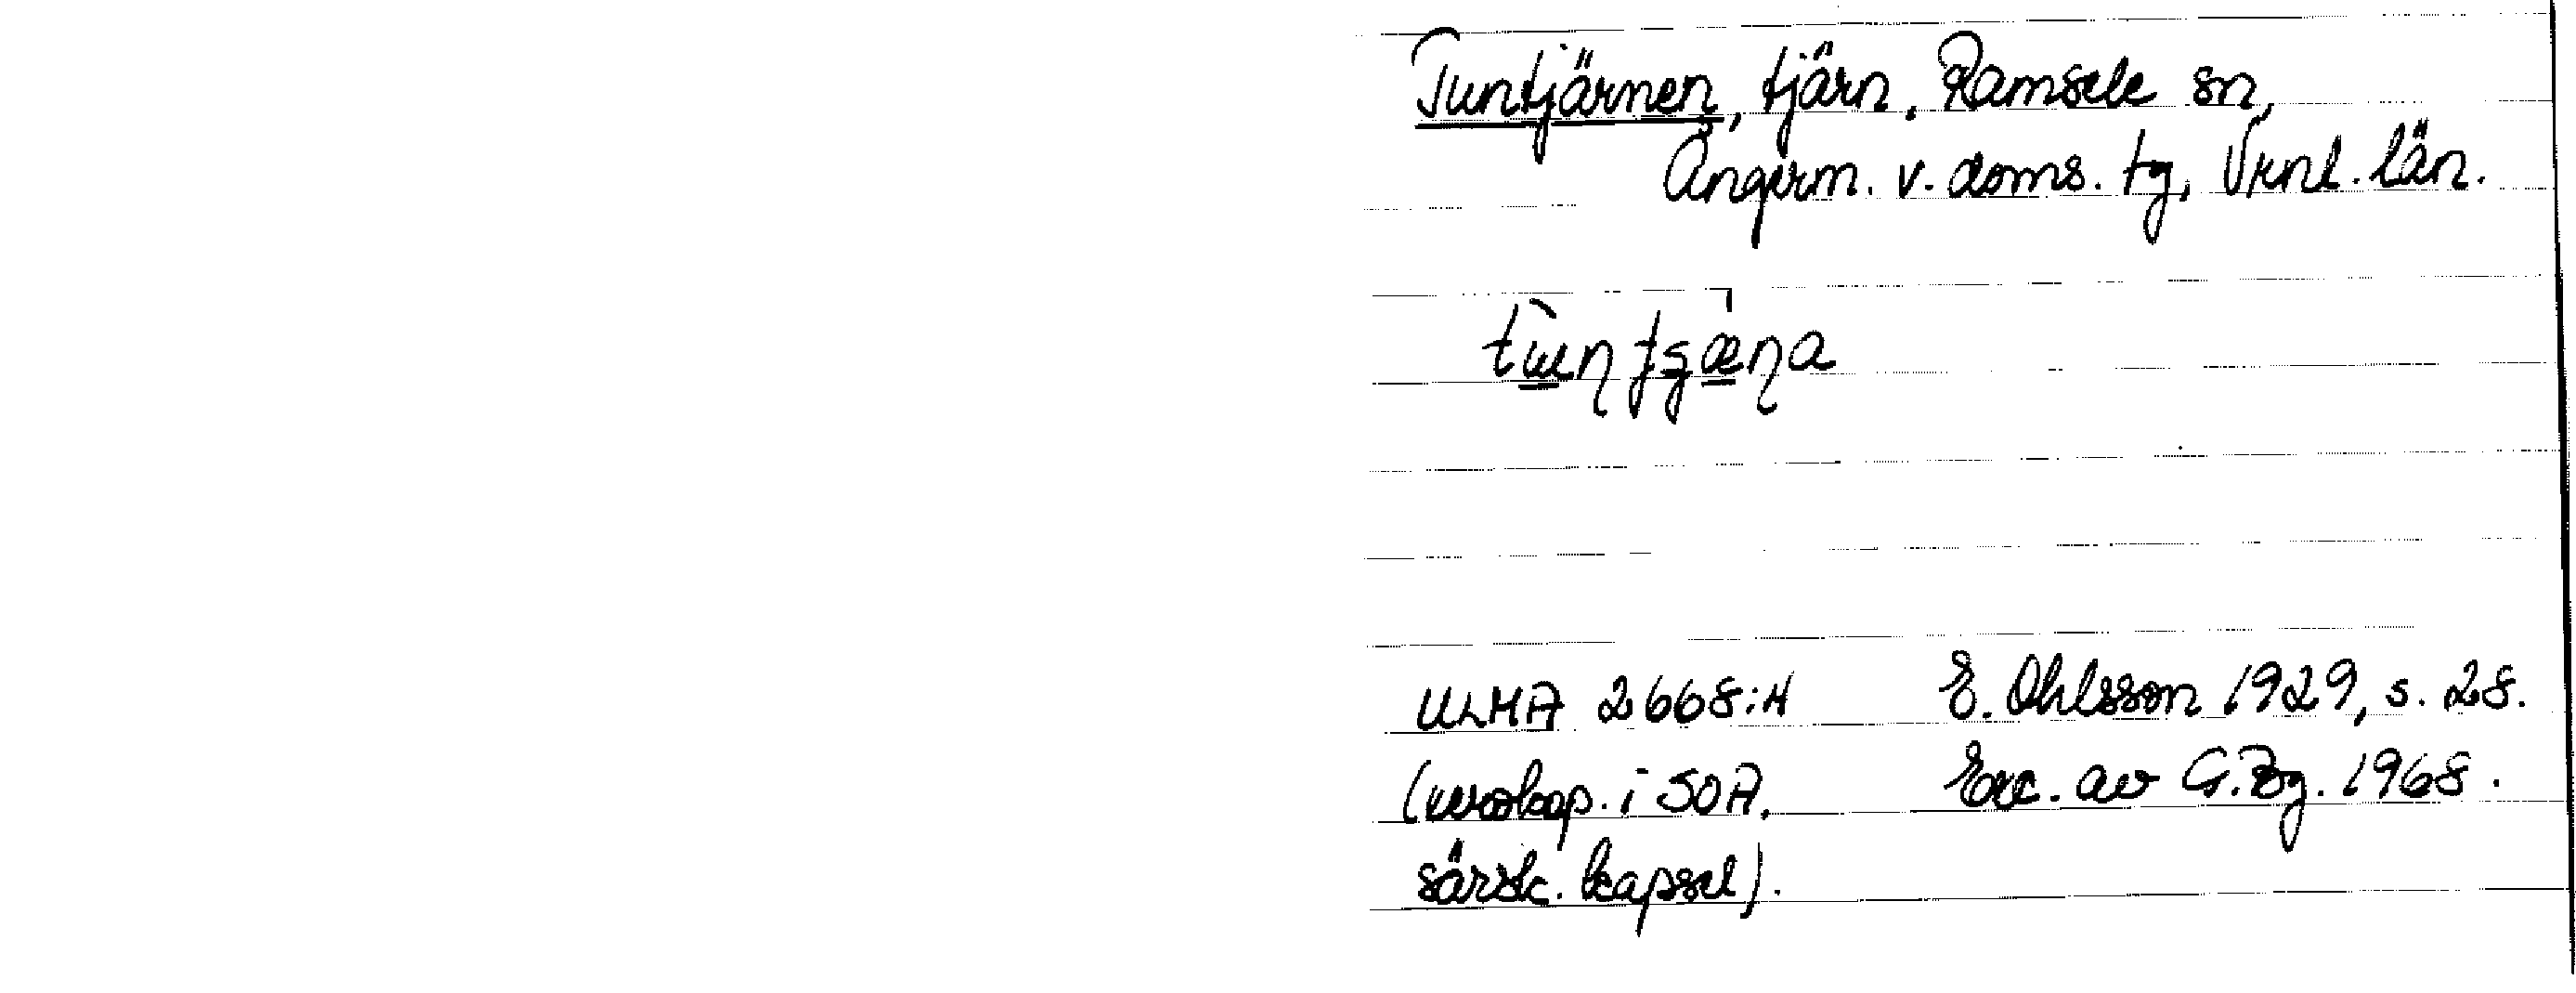 Tuntjärnen, tjärn, Ramsele sn,
Ångerm. v. doms. tg, Vrnl. län.
ULMA 2668:4 E. Ohlsson 1929, s. 28.
(xeroxkop. i SOA, Exc. av G. Bg. 1968.
särsk. kapsel).